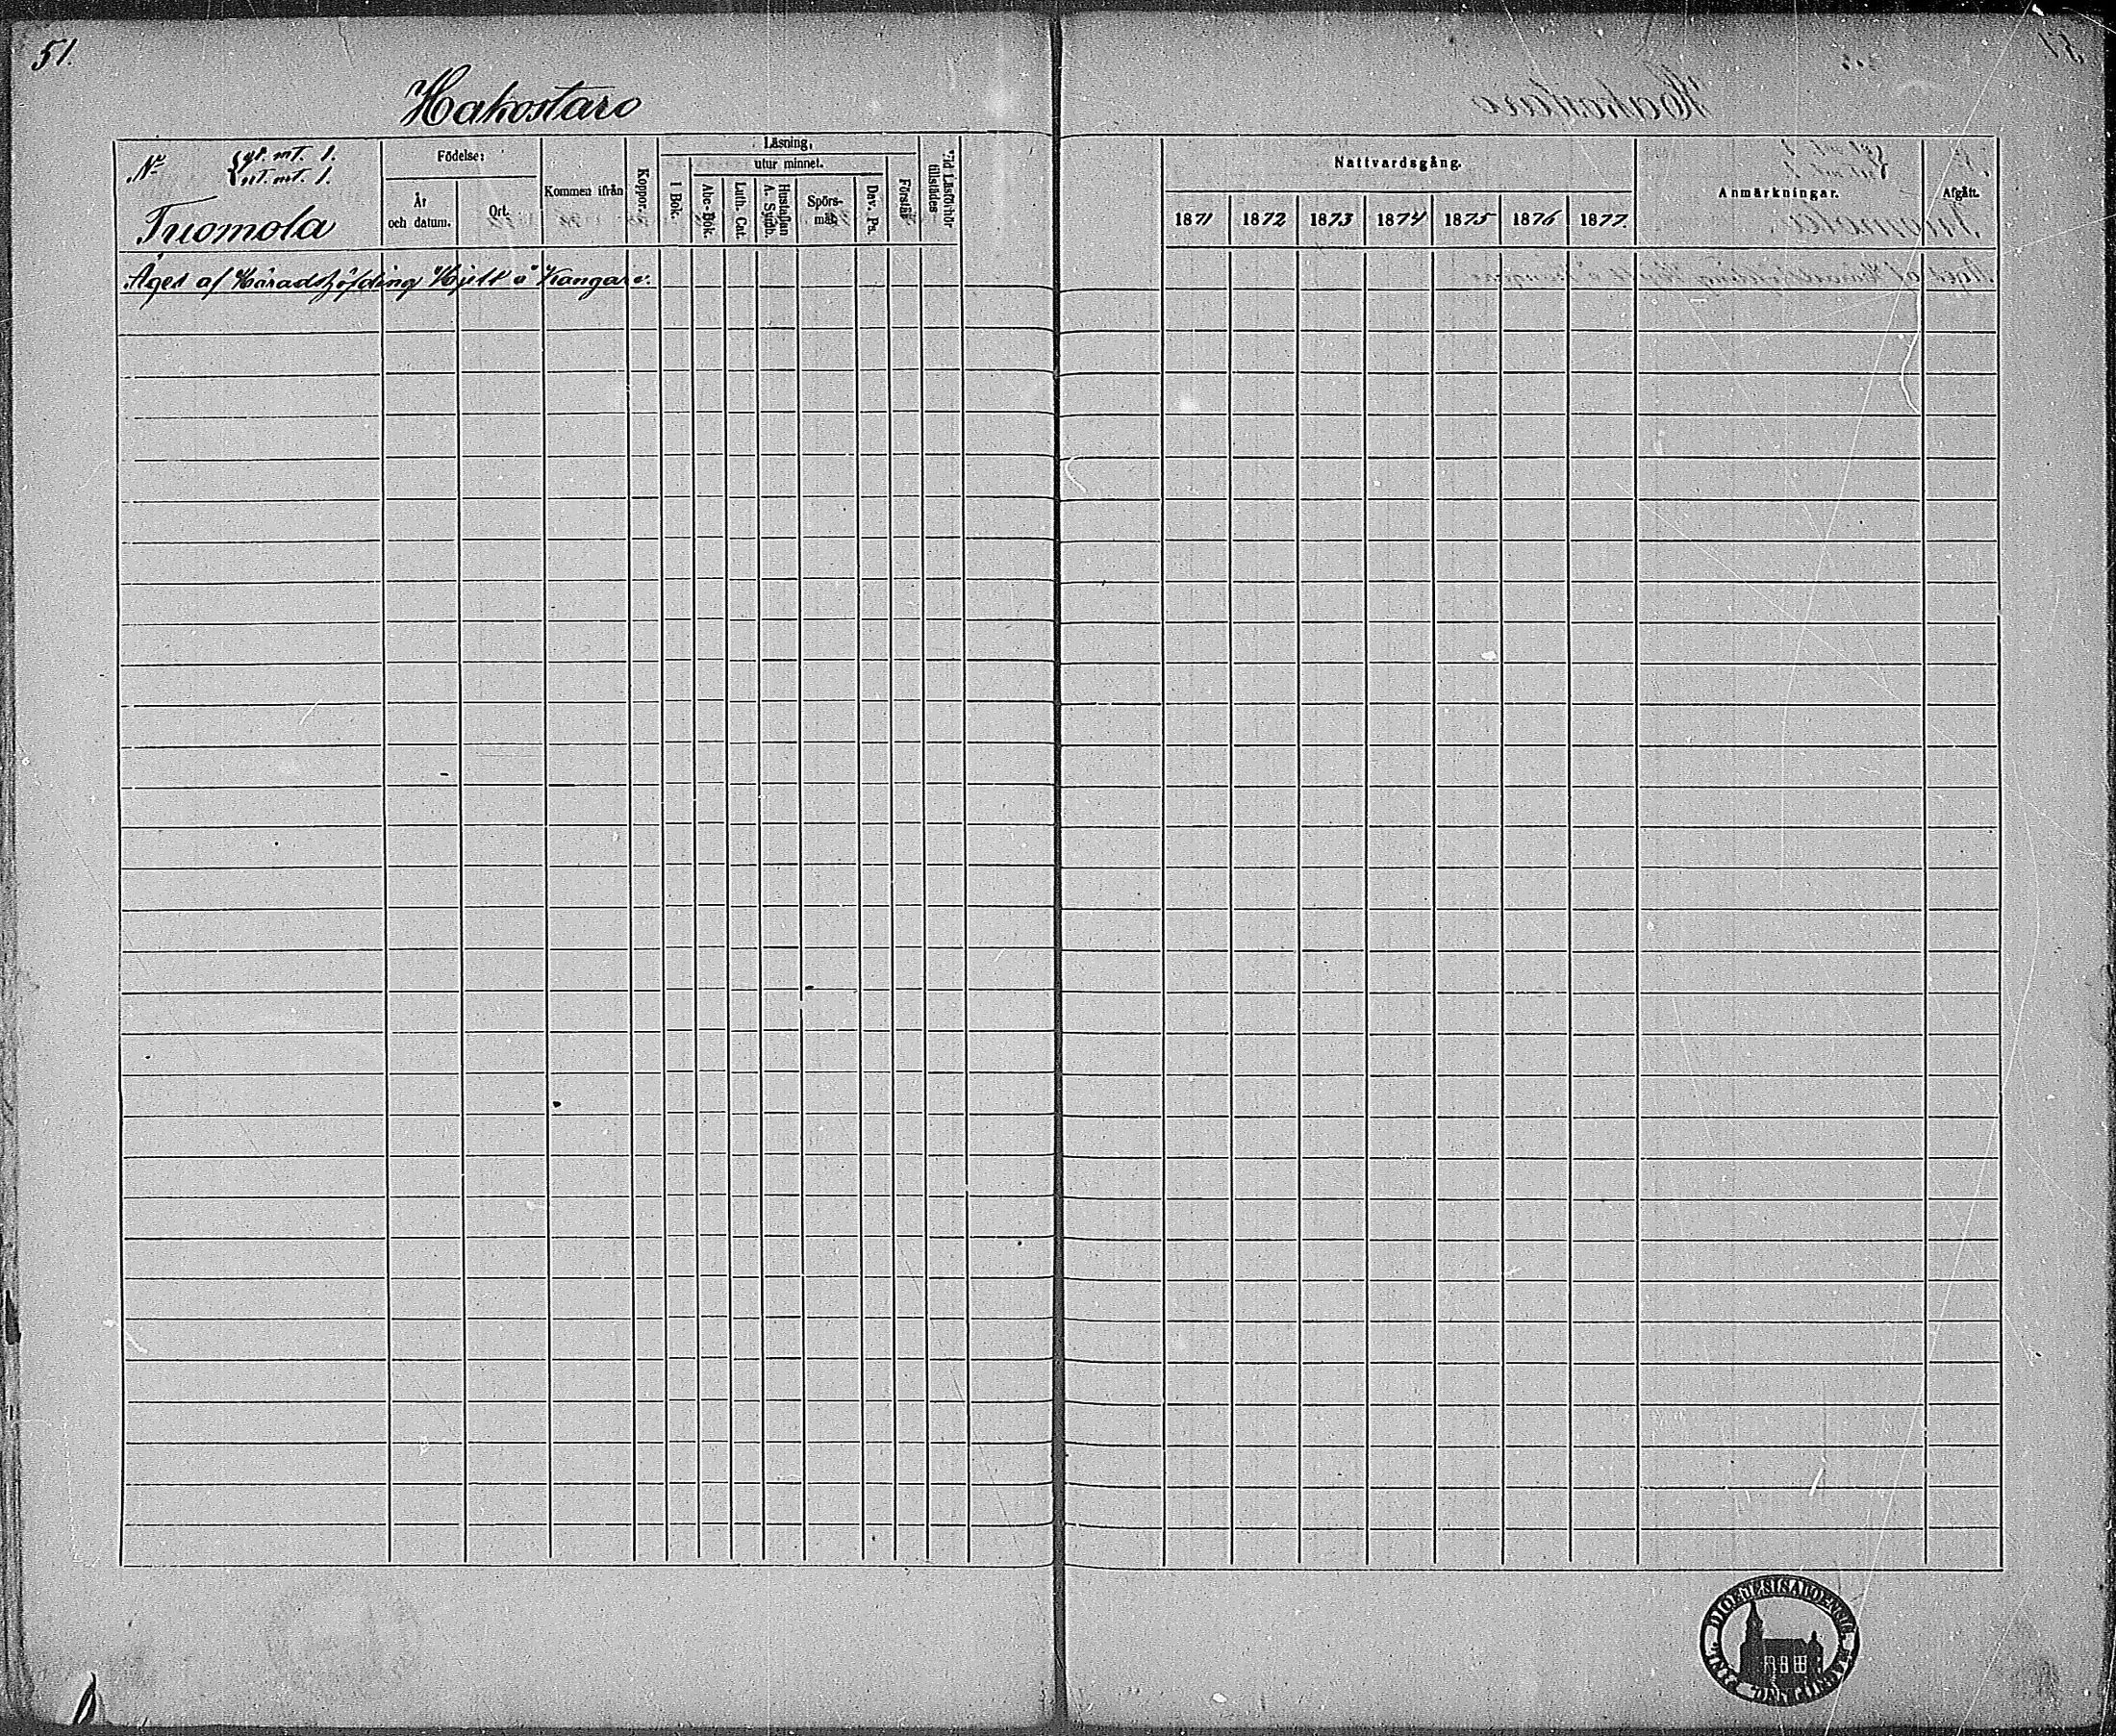 51.
Hakostaro
No { gl. mt. 1.
nt. mt. 1.
Tuomola
Födelse:
År
och datum.
Ort.
Kommen ifrån
Koppor.
Läsning,
utur minnet.
I Bok.
Abc-Bok.
Luth. Cat.
Hustaflan
A. Symb.
Spörs-
mål.
Dav. Ps.
Förstår
Vid Läsförhör
tillstädes
Äges af Häradshöfding Hjelt å Kangare.
Nattvardsgång.
1871 1872 1873 1874 1875 1876 1877.
Anmärkningar.
Afgått.